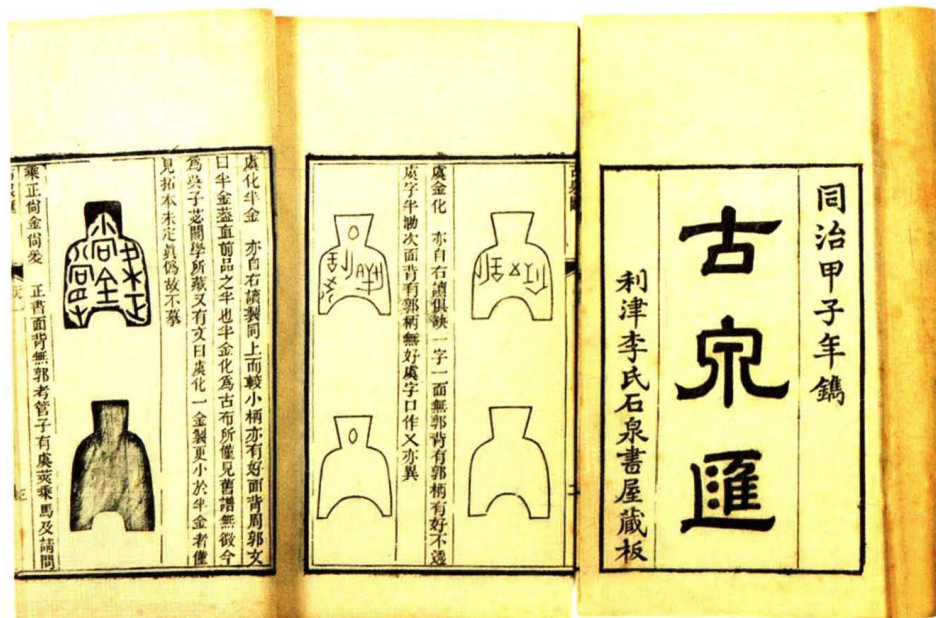 同治甲子年鐫
古泉匯
利津李氏石泉書屋藏板
虞金化 亦自右讀俱缺一字一面無郭背有郭柄有好不透
虞字半泐次面背有郭柄無好虞字口作又亦異
虞化半金 亦自右讀製同上而較小柄亦有好面背周郭文
曰半金蓋直前品之半也半金化爲古布所僅見舊譜無徵今
爲吳子苾閣學所藏又有文曰虞化一金製更小於半金者僅
見拓本未定眞僞故不摹
乘正尙金尙爰 正書面背無郭考管子有虞莢乘馬及請問